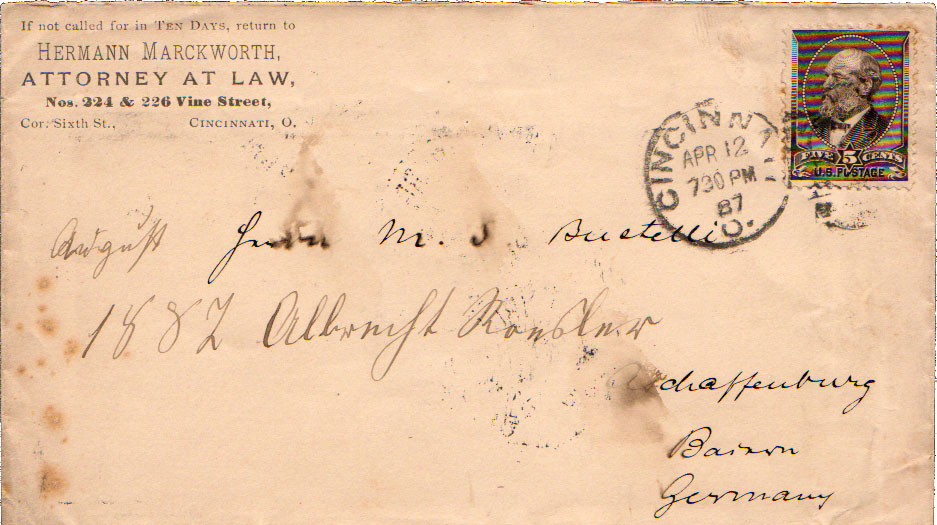 If not called for in TEN DAYS, return to
HERMANN MARCKWORTH,
ATTORNEY AT LAW,
Nos. 224 & 226 Vine Street,
Cor. Sixth St., CINCINNATI, O.
CINCINNATI
APR 12
730 PM
87
O.
FIVE 5 CENTS
U.S. POSTAGE
August
Herrn M. S.
1882 Albrecht Roesler
Aschaffenburg
Baiern
Germany